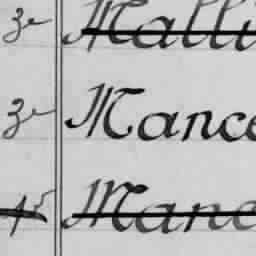 3e Malli
3e Mance
15 Manc